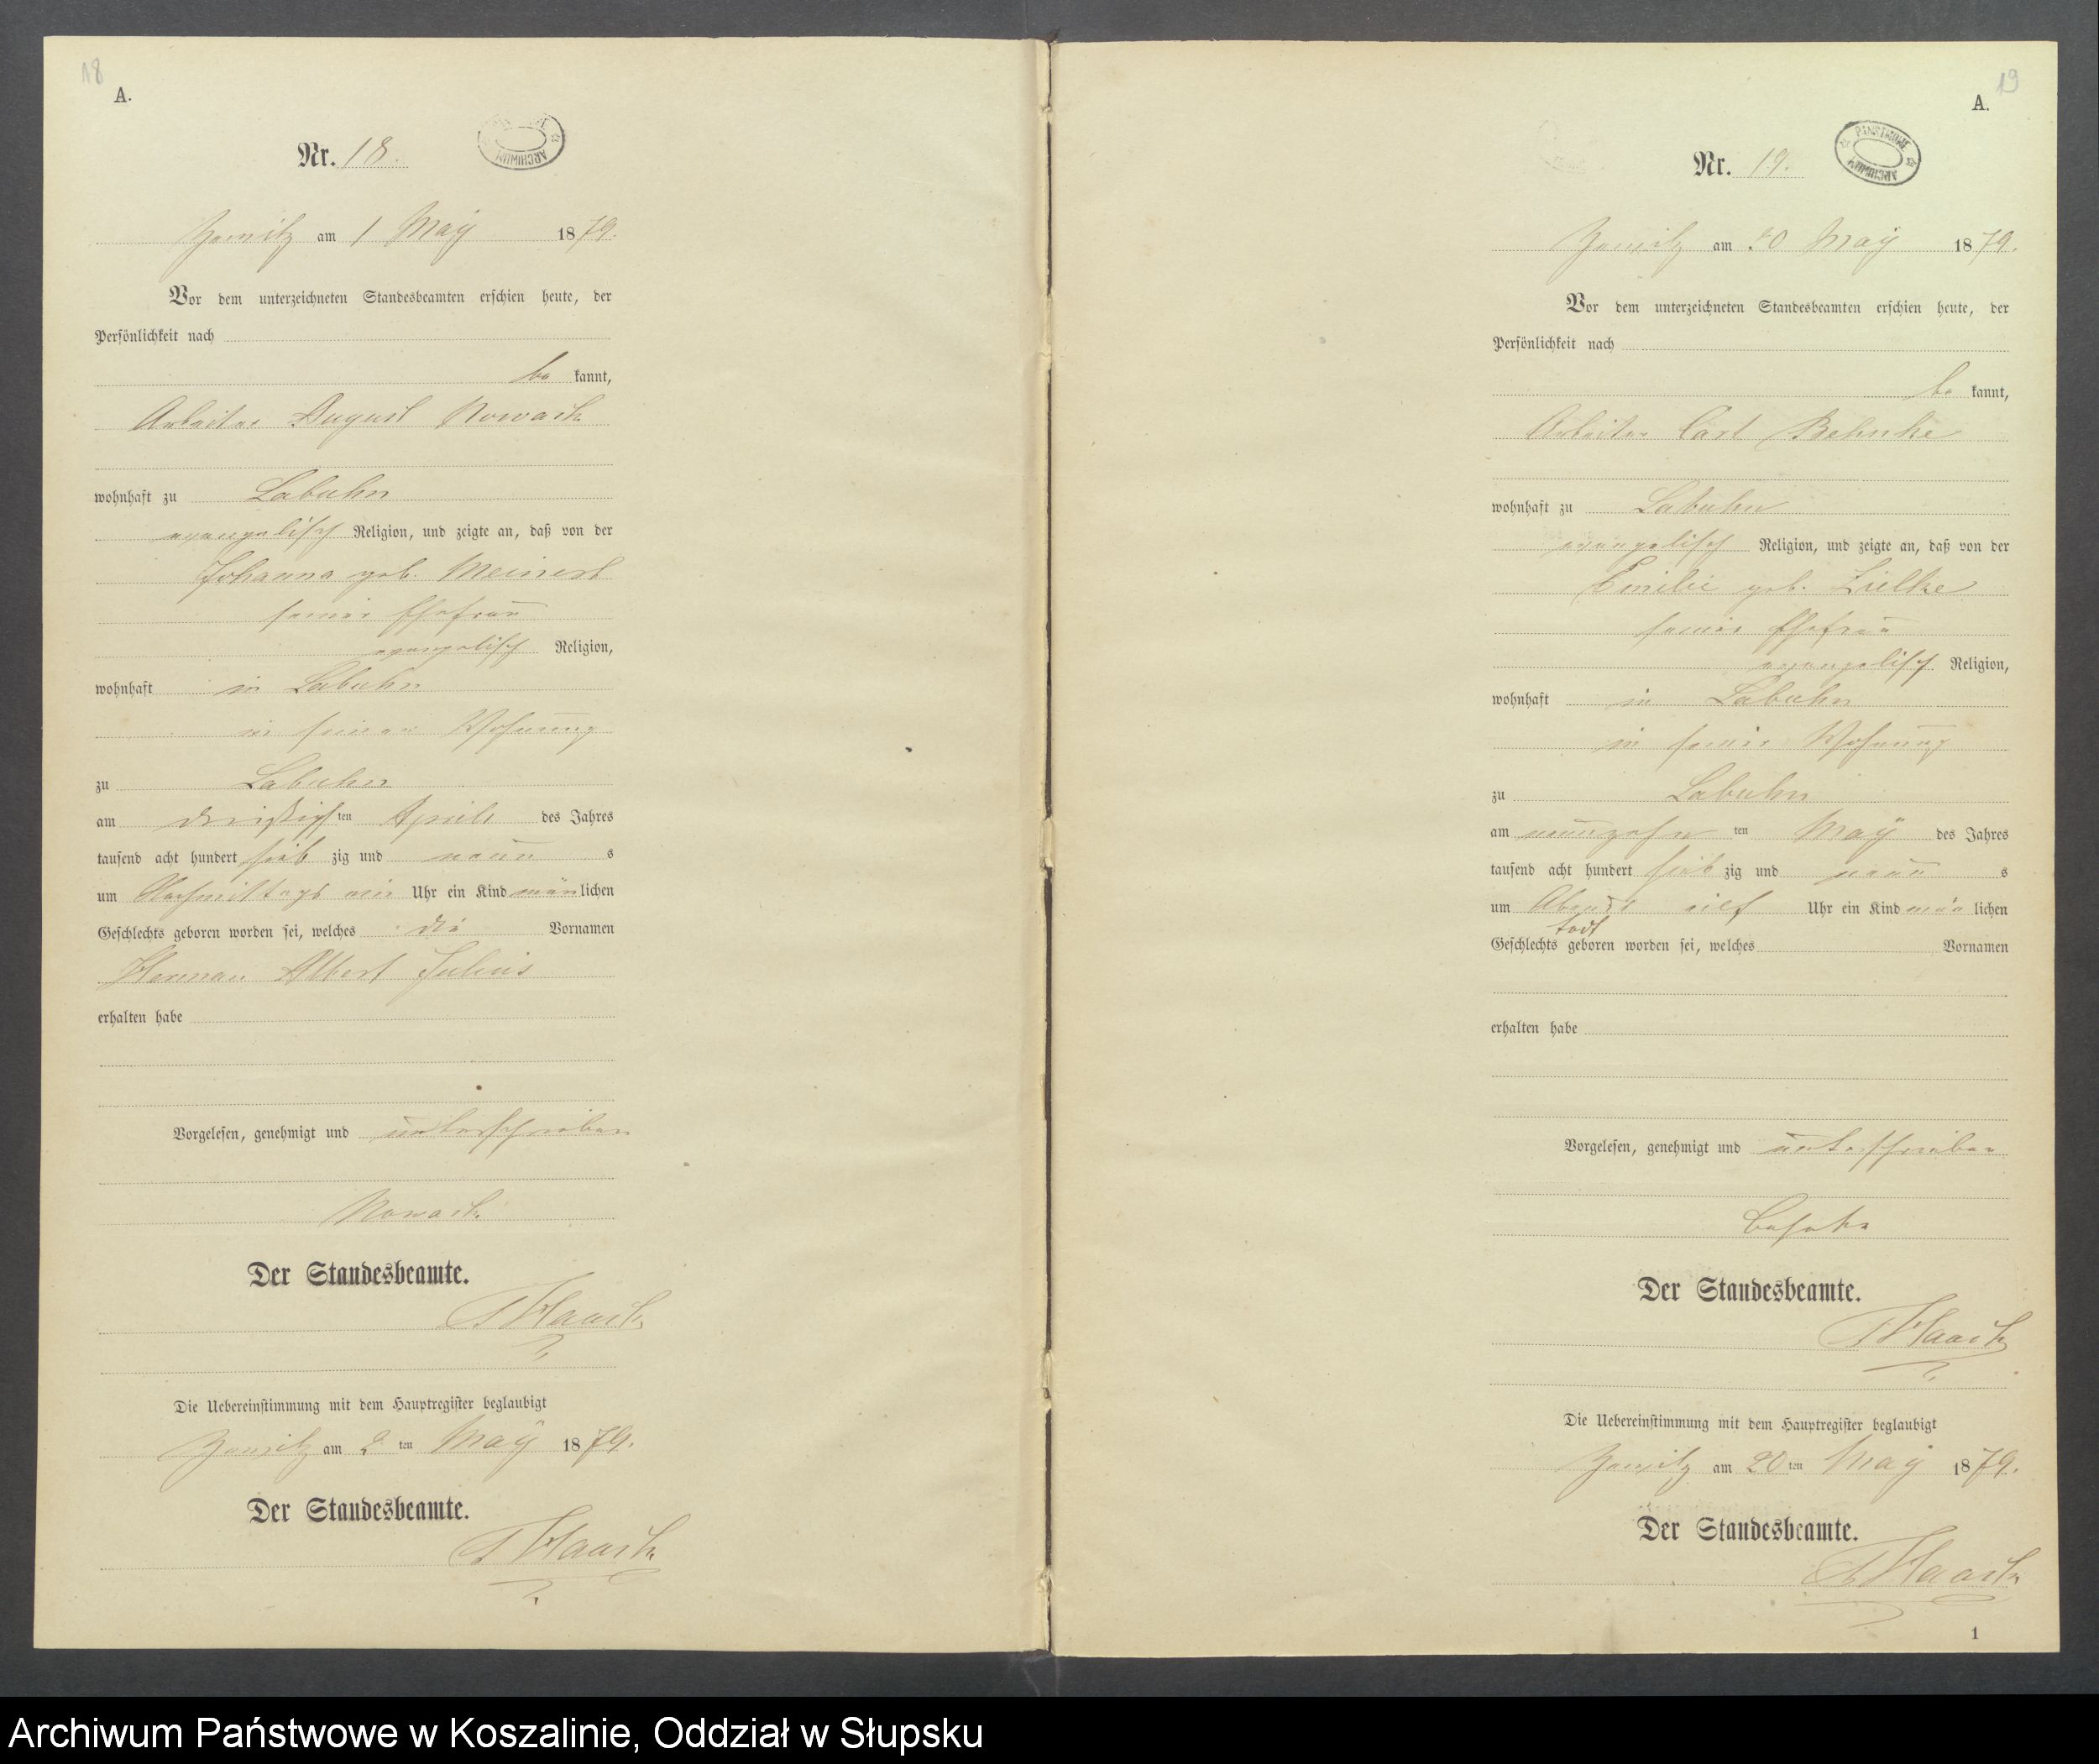 18
A.
Nr. 18.
ARCHIWUM
am 1 May 1879.
Vor dem unterzeichneten Standesbeamten erschien heute, der
Persönlichkeit nach
be kannt,
Arbeiter August Nowack
wohnhaft zu Labuhn
evangelisch Religion, und zeigte an, daß von der
Johanna geb. Meinert
seiner Ehefrau
evangelisch Religion,
wohnhaft in Labuhn
in seiner Wohnung
zu Labuhn
am dreißigsten Aprill des Jahres
tausend acht hundert sieb zig und neun s
um Nachmittags Uhr ein Kind mänlichen
Geschlechts geboren worden sei, welches die Vornamen
Herman Albert Julius
erhalten habe
Vorgelesen, genehmigt und unterschrieben
Nowack
Der Standesbeamte.
Haack
Die Uebereinstimmung mit dem Hauptregister beglaubigt
am 2 ten May 1879.
Der Standesbeamte.
Haack
19
A.
Nr. 19.
PAŃSTWOWE ARCHIWUM
am 20 May 1879.
Vor dem unterzeichneten Standesbeamten erschien heute, der
Persönlichkeit nach
be kannt,
Arbeiter Carl Behnke
wohnhaft zu Labuhn
evangelisch Religion, und zeigte an, daß von der
Emilie geb. Zielke
seiner Ehefrau
evangelisch Religion,
wohnhaft in Labuhn
in seiner Wohnung
zu Labuhn
am neunzehn ten May des Jahres
tausend acht hundert sieb zig und neun s
um Abends eilf Uhr ein Kind män lichen
todt
Geschlechts geboren worden sei, welches Vornamen
erhalten habe
Vorgelesen, genehmigt und unterschrieben
Der Standesbeamte.
Haack
Die Uebereinstimmung mit dem Hauptregister beglaubigt
am 20 ten May 1879.
Der Standesbeamte.
Haack
1
Archiwum Państwowe w Koszalinie, Oddział w Słupsku